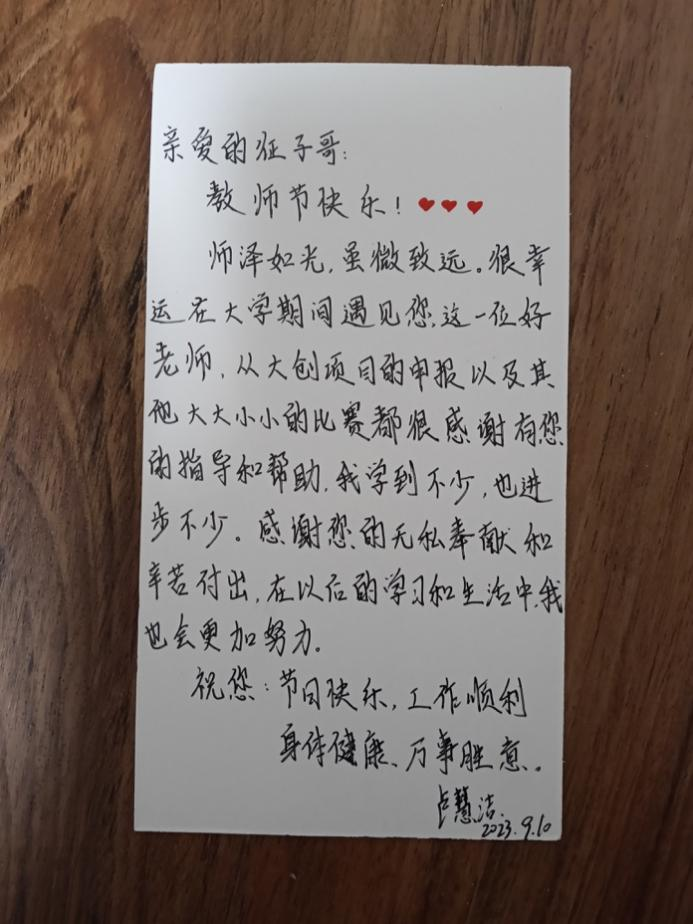 亲爱的征子哥:
教师节快乐!
师泽如光,虽微致远。很幸
运在大学期间遇见您,这一位好
老师,从大创项目的申报以及其
他大大小小的比赛都很感谢有您
的指导和帮助,我学到不少,也进
步不少。感谢您的无私奉献和
辛苦付出,在以后的学习和生活中,我
也会更加努力。
祝您:节日快乐,工作顺利
身体健康、万事胜意。
卢慧洁
2023.9.10